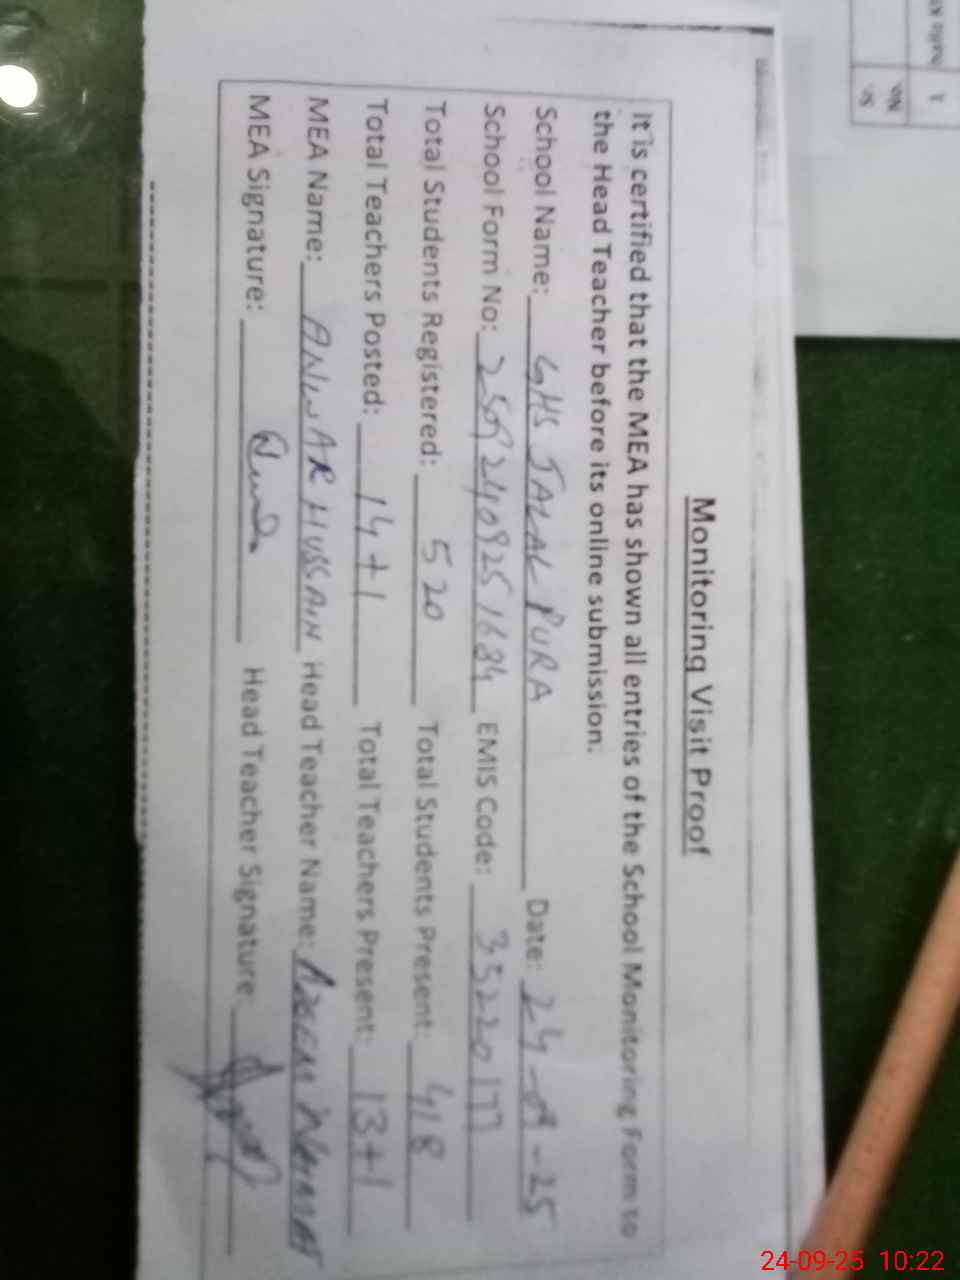 Monitoring Visit Proof
It is certified that the MEA has shown all entries of the School Monitoring Form to
the Head Teacher before its online submission.
School Name: GHS JALAL PURA Date: 24-09-25
School Form No: 25092409251684 EMIS Code: 35220177
Total Students Registered: 520 Total Students Present: 418
Total Teachers Posted: 14+1 Total Teachers Present: 13+1
MEA Name: ANWAR HUSSAIN Head Teacher Name:
MEA Signature: Head Teacher Signature:
24-09-25 10:22